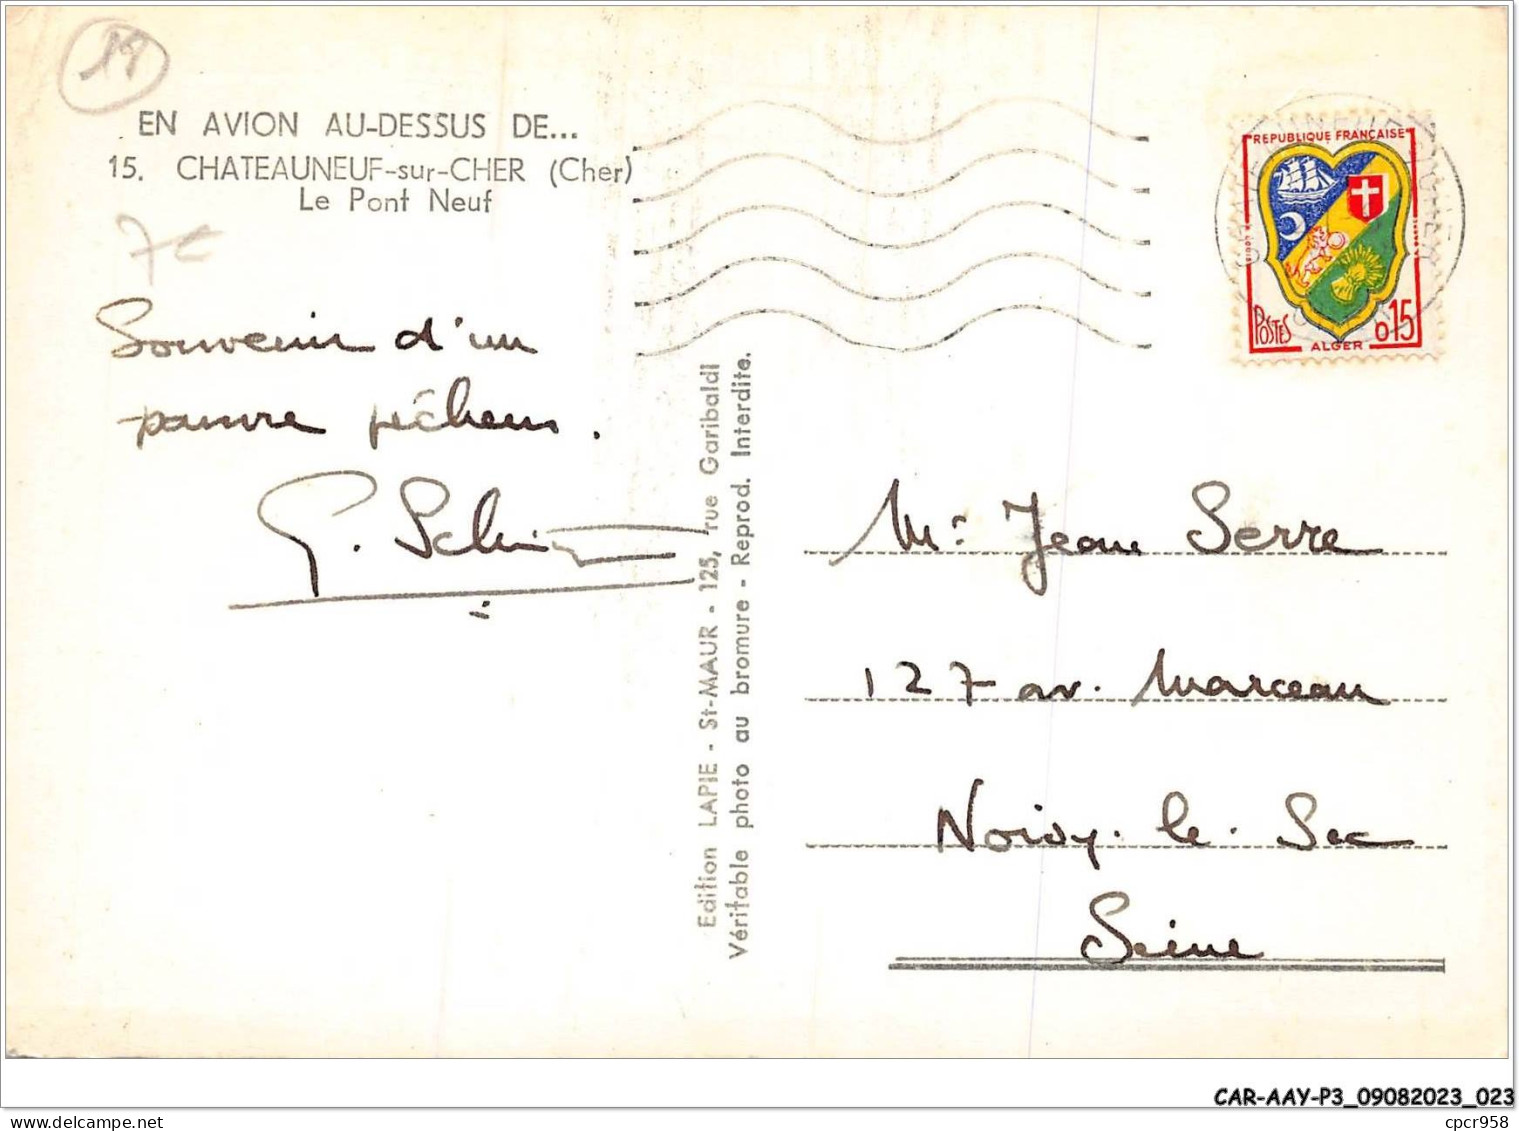 EN AVION AU-DESSUS DE...
15. CHATEAUNEUF-sur-CHER (Cher)
Le Pont Neuf
Souvenir d'un
pauvre pêcheur.
Edition LAPIE - St-MAUR - 125, rue Garibaldi
Véritable photo au bromure - Reprod. Interdite.
REPUBLIQUE FRANÇAISE
POSTES
0,15
ALGER
Mr. Jean Serre
127 av. Marceau
Noisy-le-Sec
Seine
CAR-AAY-P3_09082023_023
cpcr958